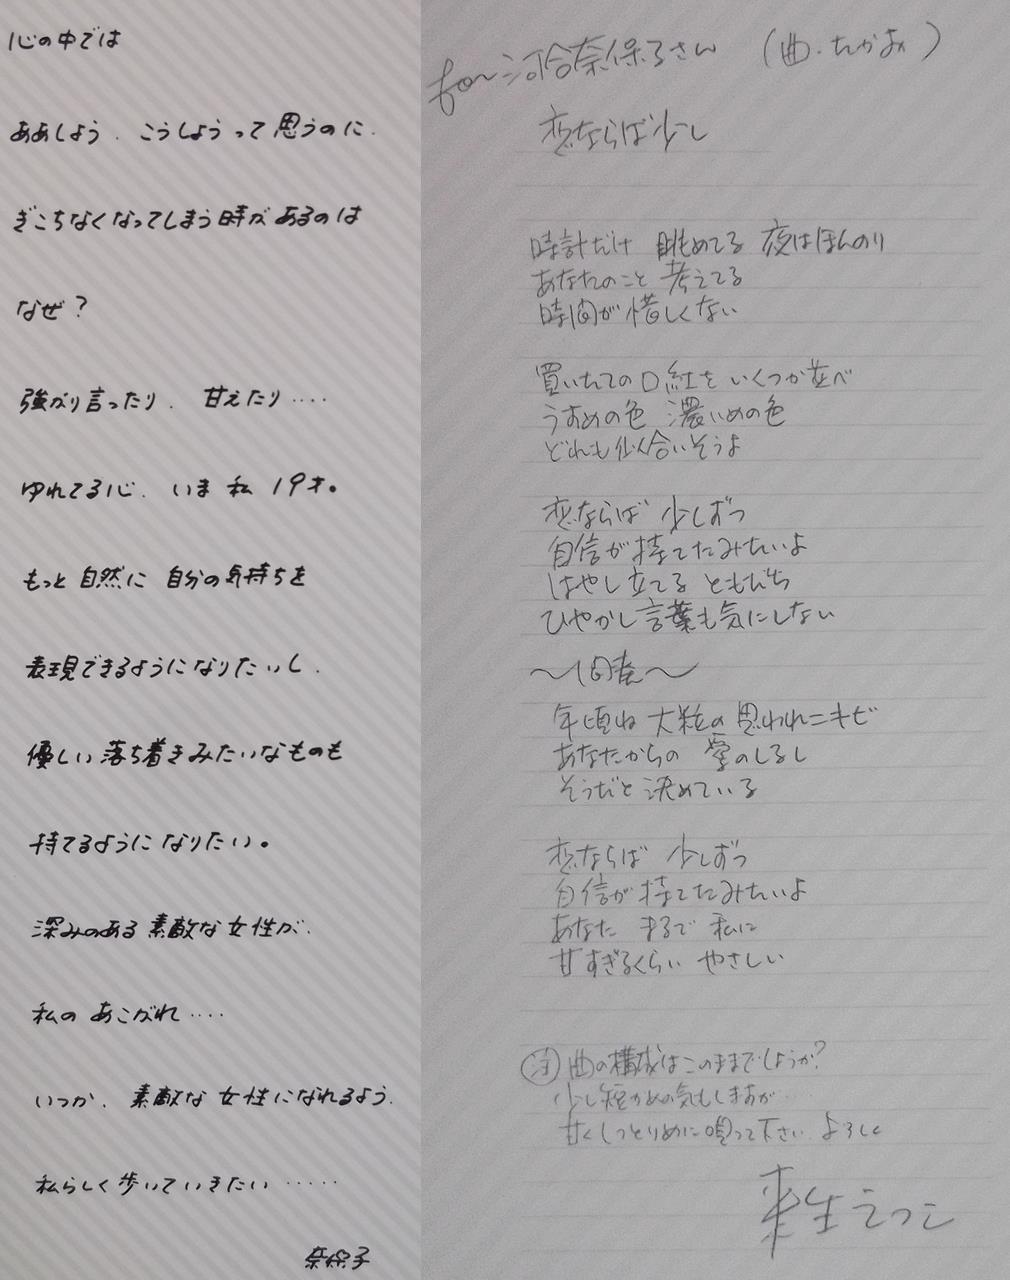 心の中では
ああしよう、こうしようって思うのに、
ぎこちなくなってしまう時があるのは
なぜ?
強がり言ったり、甘えたり‥‥
ゆれてる心、いま私19才。
もっと自然に自分の気持ちを
表現できるようになりたいし、
優しい落ち着きみたいなものも
持てるようになりたい。
深みのある素敵な女性が、
私のあこがれ‥‥
いつか、素敵な女性になれるよう、
私らしく歩いていきたい‥‥‥
奈保子
for 河合奈保子さん (曲・たかお)
恋ならば少し
時計だけ 眺めてる 夜はほんのり
あなたのこと 考えてる
時間が惜しくない
買いたての口紅を いくつか並べ
うすめの色 濃いめの色
どれも似合いそうよ
恋ならば 少しずつ
自信が持ててたみたいよ
はやし立てる ともだち
ひやかし言葉も気にしない
〜間奏〜
年頃ね 大粒の 思われニキビ
あなたからの 愛のしるし
そうだと決めている
恋ならば 少しずつ
自信が持ててたみたいよ
あなた まるで 私に
甘すぎるくらい やさしい
注 曲の構成はこのままでしょうか?
少し短かめの気もしますが…
甘くしっとりめに唄って下さい よろしく
来生えつこ